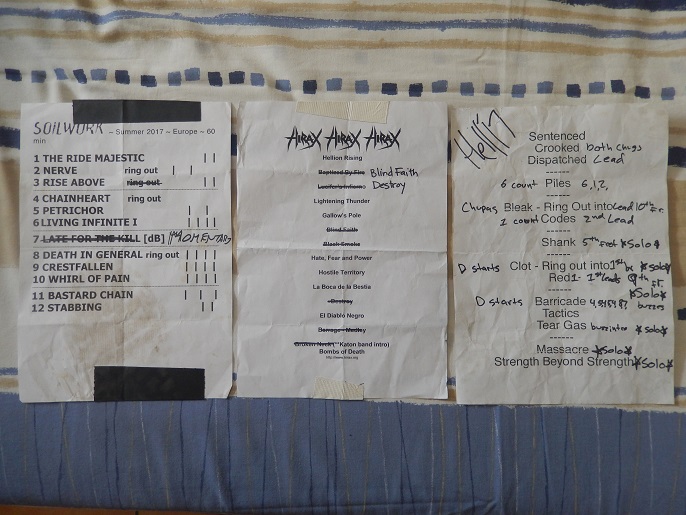 SOILWORK ~ Summer 2017 ~ Europe ~ 60 min
1 THE RIDE MAJESTIC
2 NERVE ring out
3 RISE ABOVE ring out
4 CHAINHEART ring out
5 PETRICHOR
6 LIVING INFINITE I
7 LATE FOR THE KILL [dB] MOMENTARY
8 DEATH IN GENERAL ring out
9 CRESTFALLEN
10 WHIRL OF PAIN
11 BASTARD CHAIN
12 STABBING
HIRAX HIRAX HIRAX
Hellion Rising
Baptized By Fire Blind Faith
Lucifer's Inferno Destroy
Lightening Thunder
Gallow's Pole
Blind Faith
Black Smoke
Hate, Fear and Power
Hostile Territory
La Boca de la Bestia
Destroy
El Diablo Negro
Barrage - Medley
Broken Neck (**Katon band intro)
Bombs of Death
http://www.hirax.org
Sentenced
Crooked both chugs
Dispatched Lead
------
6 count Piles 6,1,2,
------
Chugas Bleak - Ring Out into Lead 10th Fr.
1 count Codes 2nd Lead
------
Shank 5th fret *Solo*
------
D starts Clot - Ring out into *Solo*
Red
------
D starts Barricade *Solo*
Tactics
Tear Gas *Solo*
------
Massacre *Solo*
Strength Beyond Strength *Solo*